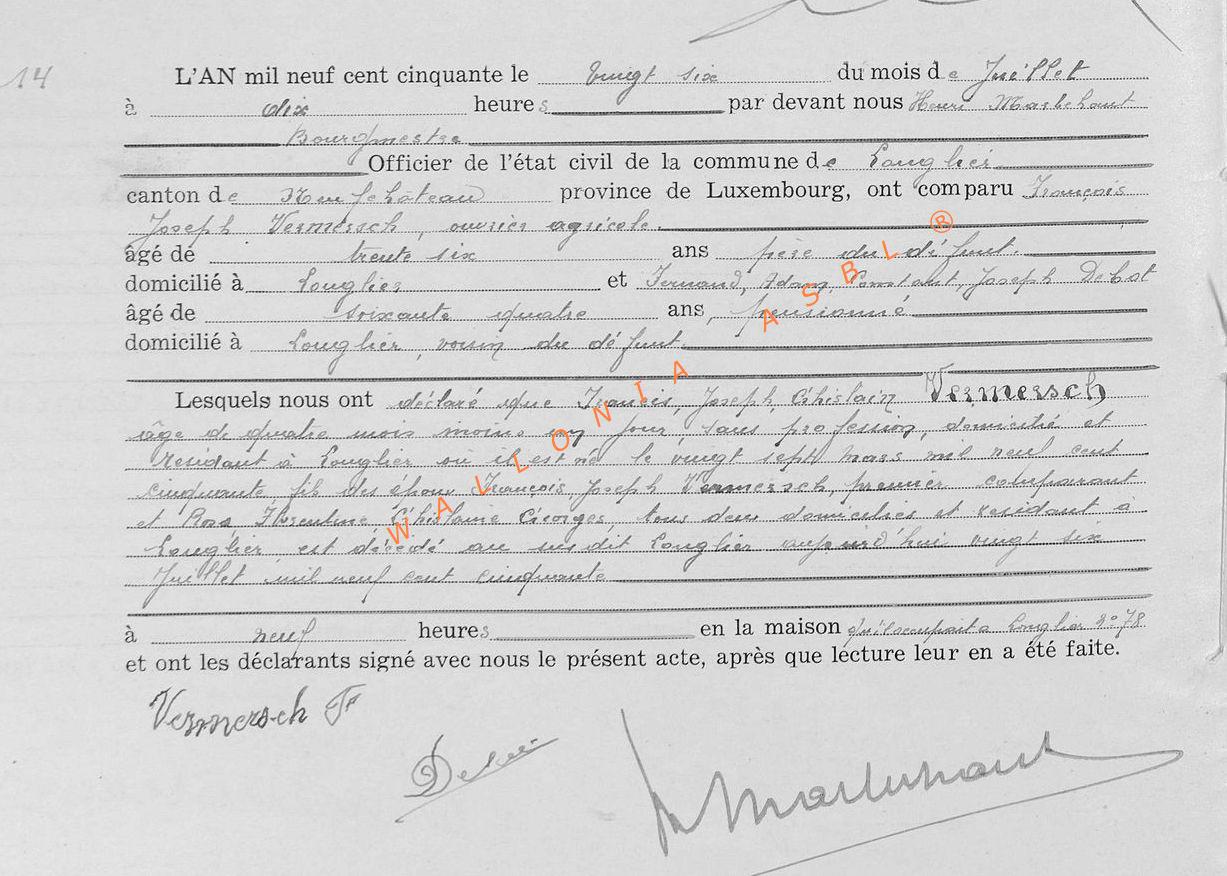 14
L'AN mil neuf cent cinquante le vingt six du mois de Juillet
à dix heures par devant nous Henri Marlehant
Bourgmestre
Officier de l'état civil de la commune de Longlier
canton de Neufchâteau province de Luxembourg, ont comparu François
Joseph Vermersch, ouvrier agricole.
âgé de trente six ans père du défunt.
domicilié à Longlier et Fernand, Adam, Constant, Joseph
âgé de soixante quatre ans, pensionné
domicilié à Longlier, voisin du défunt.
Lesquels nous ont déclaré que Francis, Joseph, Ghislain Vermersch
âgé de quatre mois moins un jour, sans profession, domicilié et
résidant à Longlier où il est né le vingt sept mars mil neuf cent
cinquante, fils des époux François, Joseph Vermersch, premier comparant
et Rosa Florentine, Ghislaine Georges, tous deux domiciliés et résidant à
Longlier est décédé au susdit Longlier aujourd'hui vingt six
Juillet mil neuf cent cinquante
à neuf heures en la maison qu'il occupait à Longlier n° 78
et ont les déclarants signé avec nous le présent acte, après que lecture leur en a été faite.
Vermersch F
WALLONIA ASBL ®